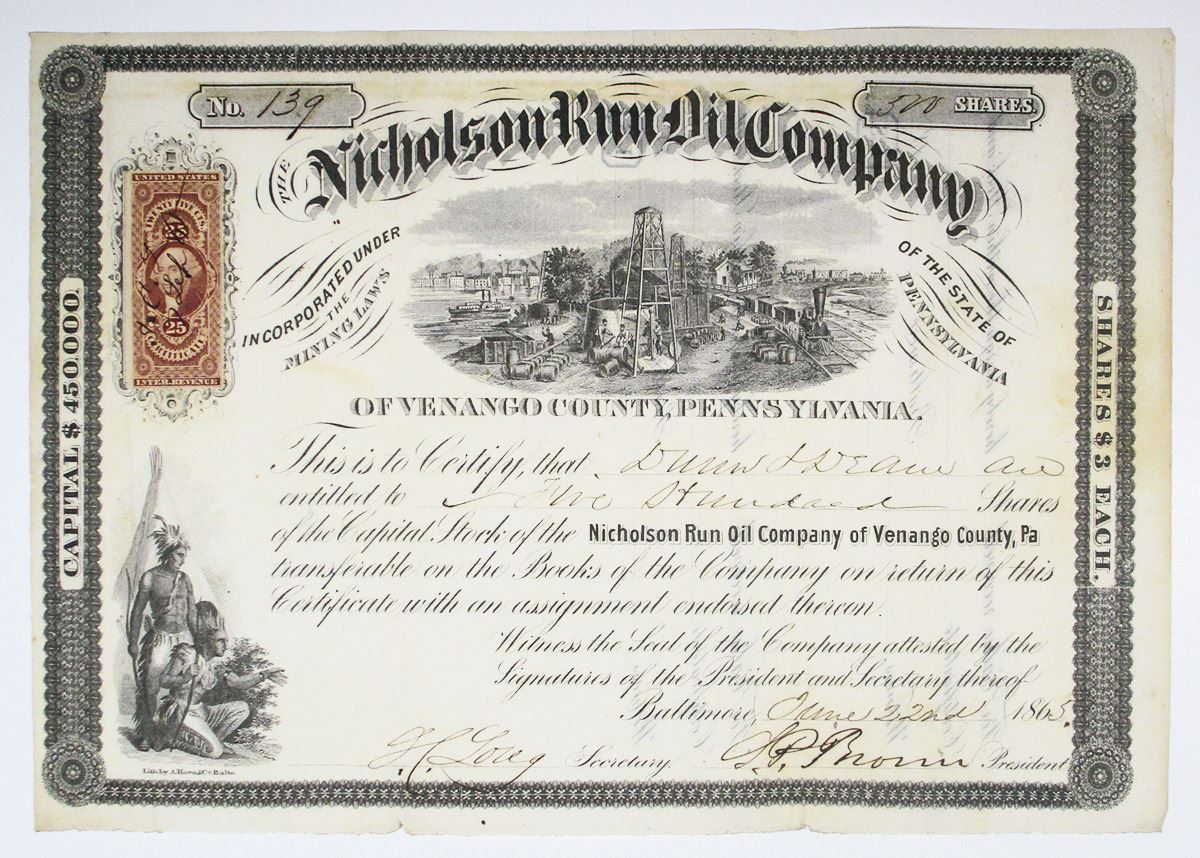 No. 139
500 SHARES.
THE Nicholson Run Oil Company
INCORPORATED UNDER
THE
MINING LAWS
OF THE STATE OF
PENNSYLVANIA
UNITED STATES
TWENTY FIVE CTS.
25
CERTIFICATE
INTER. REVENUE
CAPITAL $ 450,000
SHARES $ 3 EACH.
OF VENANGO COUNTY, PENNSYLVANIA.
This is to Certify, that Dunn & Deane are
entitled to Five Hundred Shares
of the Capital Stock of the Nicholson Run Oil Company of Venango County, Pa
transferable on the Books of the Company on return of this
Certificate with an assignment endorsed thereon.
Witness the Seal of the Company attested by the
Signatures of the President and Secretary thereof
Baltimore, June 22nd 1865.
Long Secretary. President
Lith. by A. Hoen & Co. Balto.